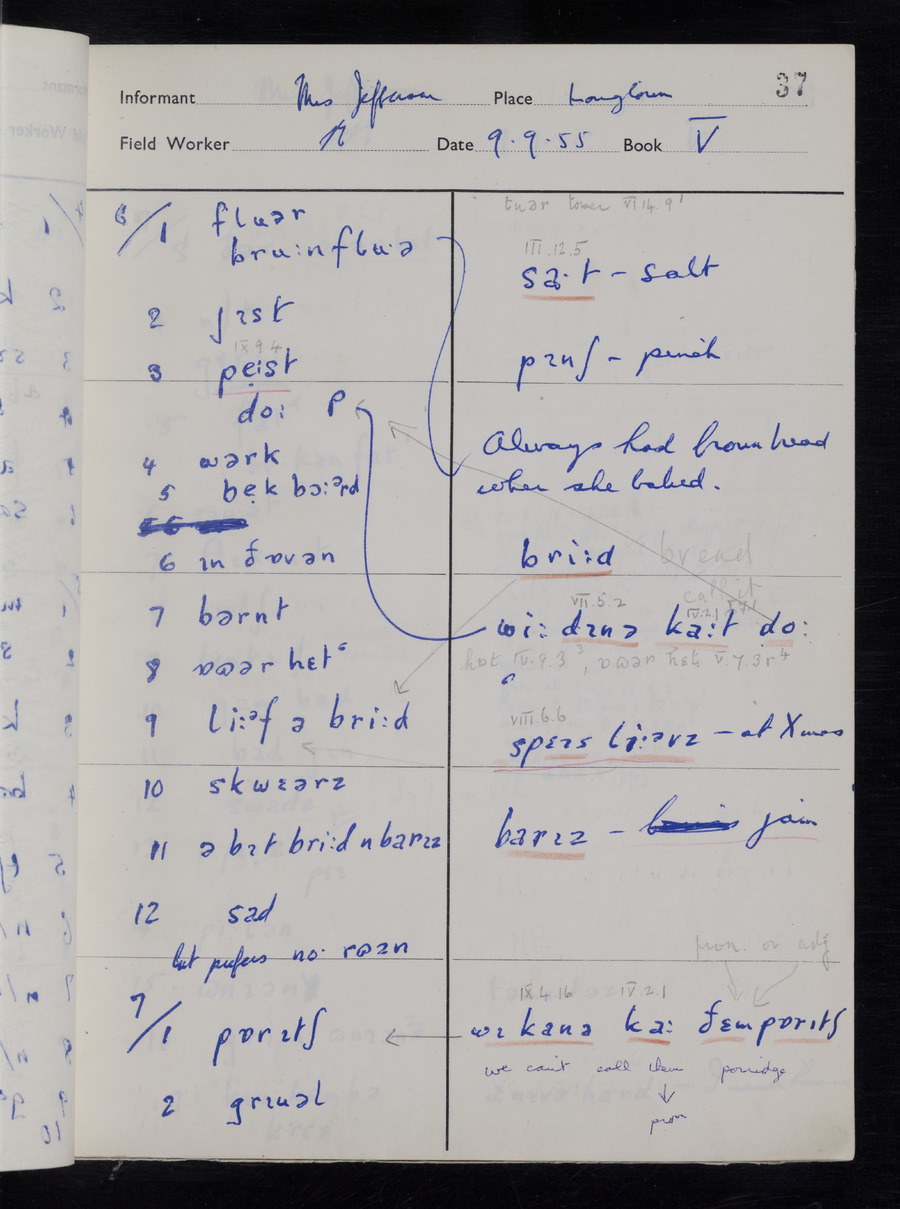 37
Informant Mrs Jefferson Place Longtown
Field Worker Date 9.9.55 Book V
6/1 fluər
bru:nflu·ə
2 jɪst
IX 9 4
3 pe̤:ist
do: P
4 wərk
5 bɛk bɔ:ərd
6 ɪn ðɒvən
7 bərnt
8 ɒwər hɛt
9 li:əf ə bri:d
10 skwɛərz
11 ə bɪt bri:d n barɪz
12 sad
but prefers no· rɒən
7/1 pɒrɪtʃ
2 grɪuəl
tuər tower VI 14.9
III.12.5
sa·t – salt
pɪnʃ – pinch
Always had brown bread
when she baked.
bri:d bread
call it
VII.5.2 IV.2.1
wi: dɪnə ka:t do:
hot IV.9.3 , ɒwər hɛt V.7.3
VIII.6.6
spɛɪs li:əvz – at Xmas
barɪz – jam
pron. or adj
IX.4.16 IV.2.1
wɪ kanə ka: ðɛm pɒrɪtʃ
we can't call them porridge
pron